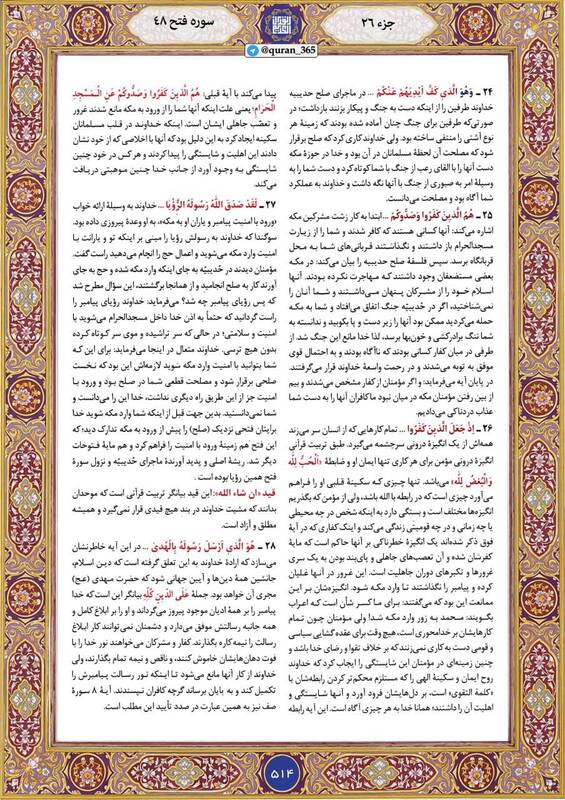 سوره فتح ۴۸
جزء ۲۶
@quran_365
۲۴ ـ وَهُوَ الَّذي كَفَّ أَيْدِيَهُمْ عَنْكُمْ ... در ماجرای صلح حدیبیه
خداوند طرفین را از اینکه دست به جنگ و پیکار بزنند بازداشت؛ در
صورتی‌که طرفین برای جنگ چنان آماده شده بودند که زمینهٔ هر
نوع آشتی را منتفی ساخته بود. ولی خداوند کاری کرد که صلح برقرار
شود که مصلحت آن لحظهٔ مسلمانان در آن بود و خدا در حوزهٔ مکه
دست آنها را با القای رعب از جنگ با شما کوتاه کرد و دست شما را به
وسیلهٔ امر به صبوری از جنگ با آنها نگه داشت و خداوند به عملکرد
شما آگاه بود و مصلحت می‌دانست.
۲۵ ـ هُمُ الَّذينَ كَفَرُوا وَصَدُّوكُمْ ... ابتدا به کار زشت مشرکین مکه
اشاره می‌کند؛ آنها کسانی هستند که کافر شدند و شما را از زیارت
مسجدالحرام باز داشتند و نگذاشتند قربانی‌های شما به محل
قربانگاه برسد. سپس فلسفهٔ صلح حدیبیه را بیان می‌کند؛ در مکه
بعضی مستضعفان وجود داشتند که مهاجرت نکرده بودند. آنها
اسلام خود را از مشرکان پنهان می‌داشتند و شما آنان را
نمی‌شناختید، اگر در حُدیبیّه جنگ اتفاق می‌افتاد و شما به مکه
حمله می‌کردید ممکن بود آنها را زیر دست و پا بکوبید و ندانسته به
شما ننگ برادرکشی و خون‌بها برسد، لذا خدا مانع این جنگ شد. از
طرفی در میان کفار کسانی بودند که ناآگاه بودند و به احتمال قوی
موفق به توبه می‌شدند و در رحمت واسعهٔ خداوند قرار می‌گرفتند.
در پایان آیه می‌فرماید: و اگر مؤمنان از کفار مشخص می‌شدند و بیم
از بین رفتن مؤمنان مکه در میان نبود ما کافران آنها را به دست شما
عذاب دردناکی می‌دادیم.
۲۶ ـ إِذْ جَعَلَ الَّذينَ كَفَرُوا ... تمام کارهایی که از انسان سر می‌زند
همه‌اش از یک انگیزهٔ درونی سرچشمه می‌گیرد. طبق تربیت قرآنی
انگیزهٔ درونی مؤمن برای هر کاری تنها ایمان او و ضابطهٔ «اَلْحُبُّ لِلّٰه
وَالْبُغْضُ لِلّٰه» می‌باشد. تنها چیزی که سکینهٔ قلبی او را فراهم
می‌آورد چیزی است که در رابطه با الله باشد، ولی از مؤمن که بگذریم
انگیزه‌ها مختلف است و بستگی دارد به اینکه شخص در چه محیطی
یا چه زمانی و در چه قومیتی زندگی می‌کند و اینک کفاری که در آیهٔ
فوق ذکر شده‌اند یک انگیزهٔ خطرناکی بر آنها حاکم است که مایهٔ
کفرشان شده و آن تعصب‌های جاهلی و پای‌بند بودن به یک سری
غرورها و تکبرهای دوران جاهلیت است. این غرور در آنها غلیان
کرده و پیامبر را نگذاشتند تا وارد مکه شود. انگیزه‌شان بر این
ممانعت این بود که می‌گفتند: برای ما کسر شأن است که اعراب
بگویند: محمد به زور وارد مکه شد! ولی مؤمنان چون تمام
کارهایشان بر خدامحوری است، هیچ وقت برای عقده‌گشایی سیاسی
و قومی دست به کاری نمی‌زنند که بر خلاف تقوا و رضای خدا باشد و
چنین زمینه‌ای در مؤمنان این شایستگی را ایجاب کرد که خداوند
روح ایمان و سکینهٔ الهی را که مستلزم محکم‌تر کردن رابطه‌شان با
«کلمهٔ التقوی» است، بر دل‌هایشان فرود آورد و آنها شایستگی و
اهلیت آن را داشتند؛ همانا خدا به هر چیزی آگاه است. این آیه رابطه
پیدا می‌کند با آیهٔ قبلی: هُمُ الَّذينَ كَفَرُوا وَصَدُّوكُمْ عَنِ الْمَسْجِدِ
الْحَرَامِ؛ یعنی علت اینکه آنها شما را از ورود به مکه مانع شدند غرور
و تعصّب جاهلی ایشان است. اینکه خداوند در قلب مسلمانان
سکینه ایجاد کرد به این دلیل بود که آنها با اخلاصی که از خود نشان
دادند این اهلیت و شایستگی را پیدا کردند و هر کس در خود چنین
شایستگی به وجود آورد از جانب خدا چنین موهبتی دریافت
می‌کند.
۲۷ ـ لَقَدْ صَدَقَ اللّٰهُ رَسُولَهُ الرُّؤْيَا ... خداوند به وسیلهٔ ارائه خواب
«ورود با امنیت پیامبر و یاران او به مکه»، به او وعدهٔ پیروزی داده بود.
سوگند! که خداوند به رسولش رؤیا را مبنی بر اینکه تو و یارانت با
امنیت وارد مکه می‌شوید و اعمال حج را انجام می‌دهید راست گفت.
مؤمنان دیدند در حدیبیّه به جای اینکه وارد مکه شده و حج به جای
آورند کار به صلح انجامید و از همانجا برگشتند، این سؤال مطرح شد
که پس رؤیای پیامبر چه شد؟ می‌فرماید: خداوند رؤیای پیامبر را
راست گردانید که حتماً به اذن خدا داخل مسجدالحرام می‌شوید با
امنیت و سلامتی؛ در حالی که سر تراشیده و موی سر کوتاه کرده
بدون هیچ ترسی. خداوند متعال در اینجا می‌فرماید: برای این که
شما بتوانید با امنیت وارد مکه شوید لازمه‌اش این بود که نخست
صلحی برقرار شود و مصلحت قطعی شما در صلح بود و ورود با
امنیت جز از این طریق راه دیگری نداشت، خدا این را می‌دانست و
شما نمی‌دانستید. بدین جهت قبل از اینکه شما وارد مکه شوید خدا
برایتان فتحی نزدیک (صلح) را پیش از ورود به مکه تدارک دید؛ که
این فتح هم زمینهٔ ورود با امنیت را فراهم کرد و هم مایهٔ فتوحات
دیگر شد. ریشهٔ اصلی و پدید آورندهٔ ماجرای حُدیبیّه و نزول سورهٔ
فتح همین رؤیا بوده است.
قید «ان شاء الله»: این قید بیانگر تربیت قرآنی است که موحدان
بدانند که مشیت خداوند در بند هیچ قیدی قرار نمی‌گیرد و همیشه
مطلق و آزاد است.
۲۸ ـ هُوَ الَّذي أَرْسَلَ رَسُولَهُ بِالْهُدىٰ ... در این آیه خاطرنشان
می‌سازد که ارادهٔ خداوند به این تعلق گرفته است که دین اسلام،
جانشین همهٔ دین‌ها و آیین جهانی شود که حضرت مهدی (عج)
مجری آن خواهد بود. جملهٔ عَلَى الدِّينِ كُلِّهِ بیانگر این است که خدا
پیامبر را بر همهٔ ادیان موجود پیروز می‌گرداند و او را بر ابلاغ کامل و
همه جانبه رسالتش موفق می‌دارد و دشمنان نمی‌توانند کار ابلاغ
رسالت را نیمه‌کاره بگذارند. کفار و مشرکان می‌خواهند نور خدا را با
فوت دهان‌هایشان خاموش کنند، و ناقص و نیمه تمام بگذارند، ولی
خداوند از کار آنها مانع می‌شود تا اینکه نور رسالت پیامبرش را
تکمیل کند و به پایان برساند گرچه کافران نپسندند. آیهٔ ۸ سورهٔ
صف نیز به همین عبارت در صدد تأیید این مطلب است.
۵۱۴